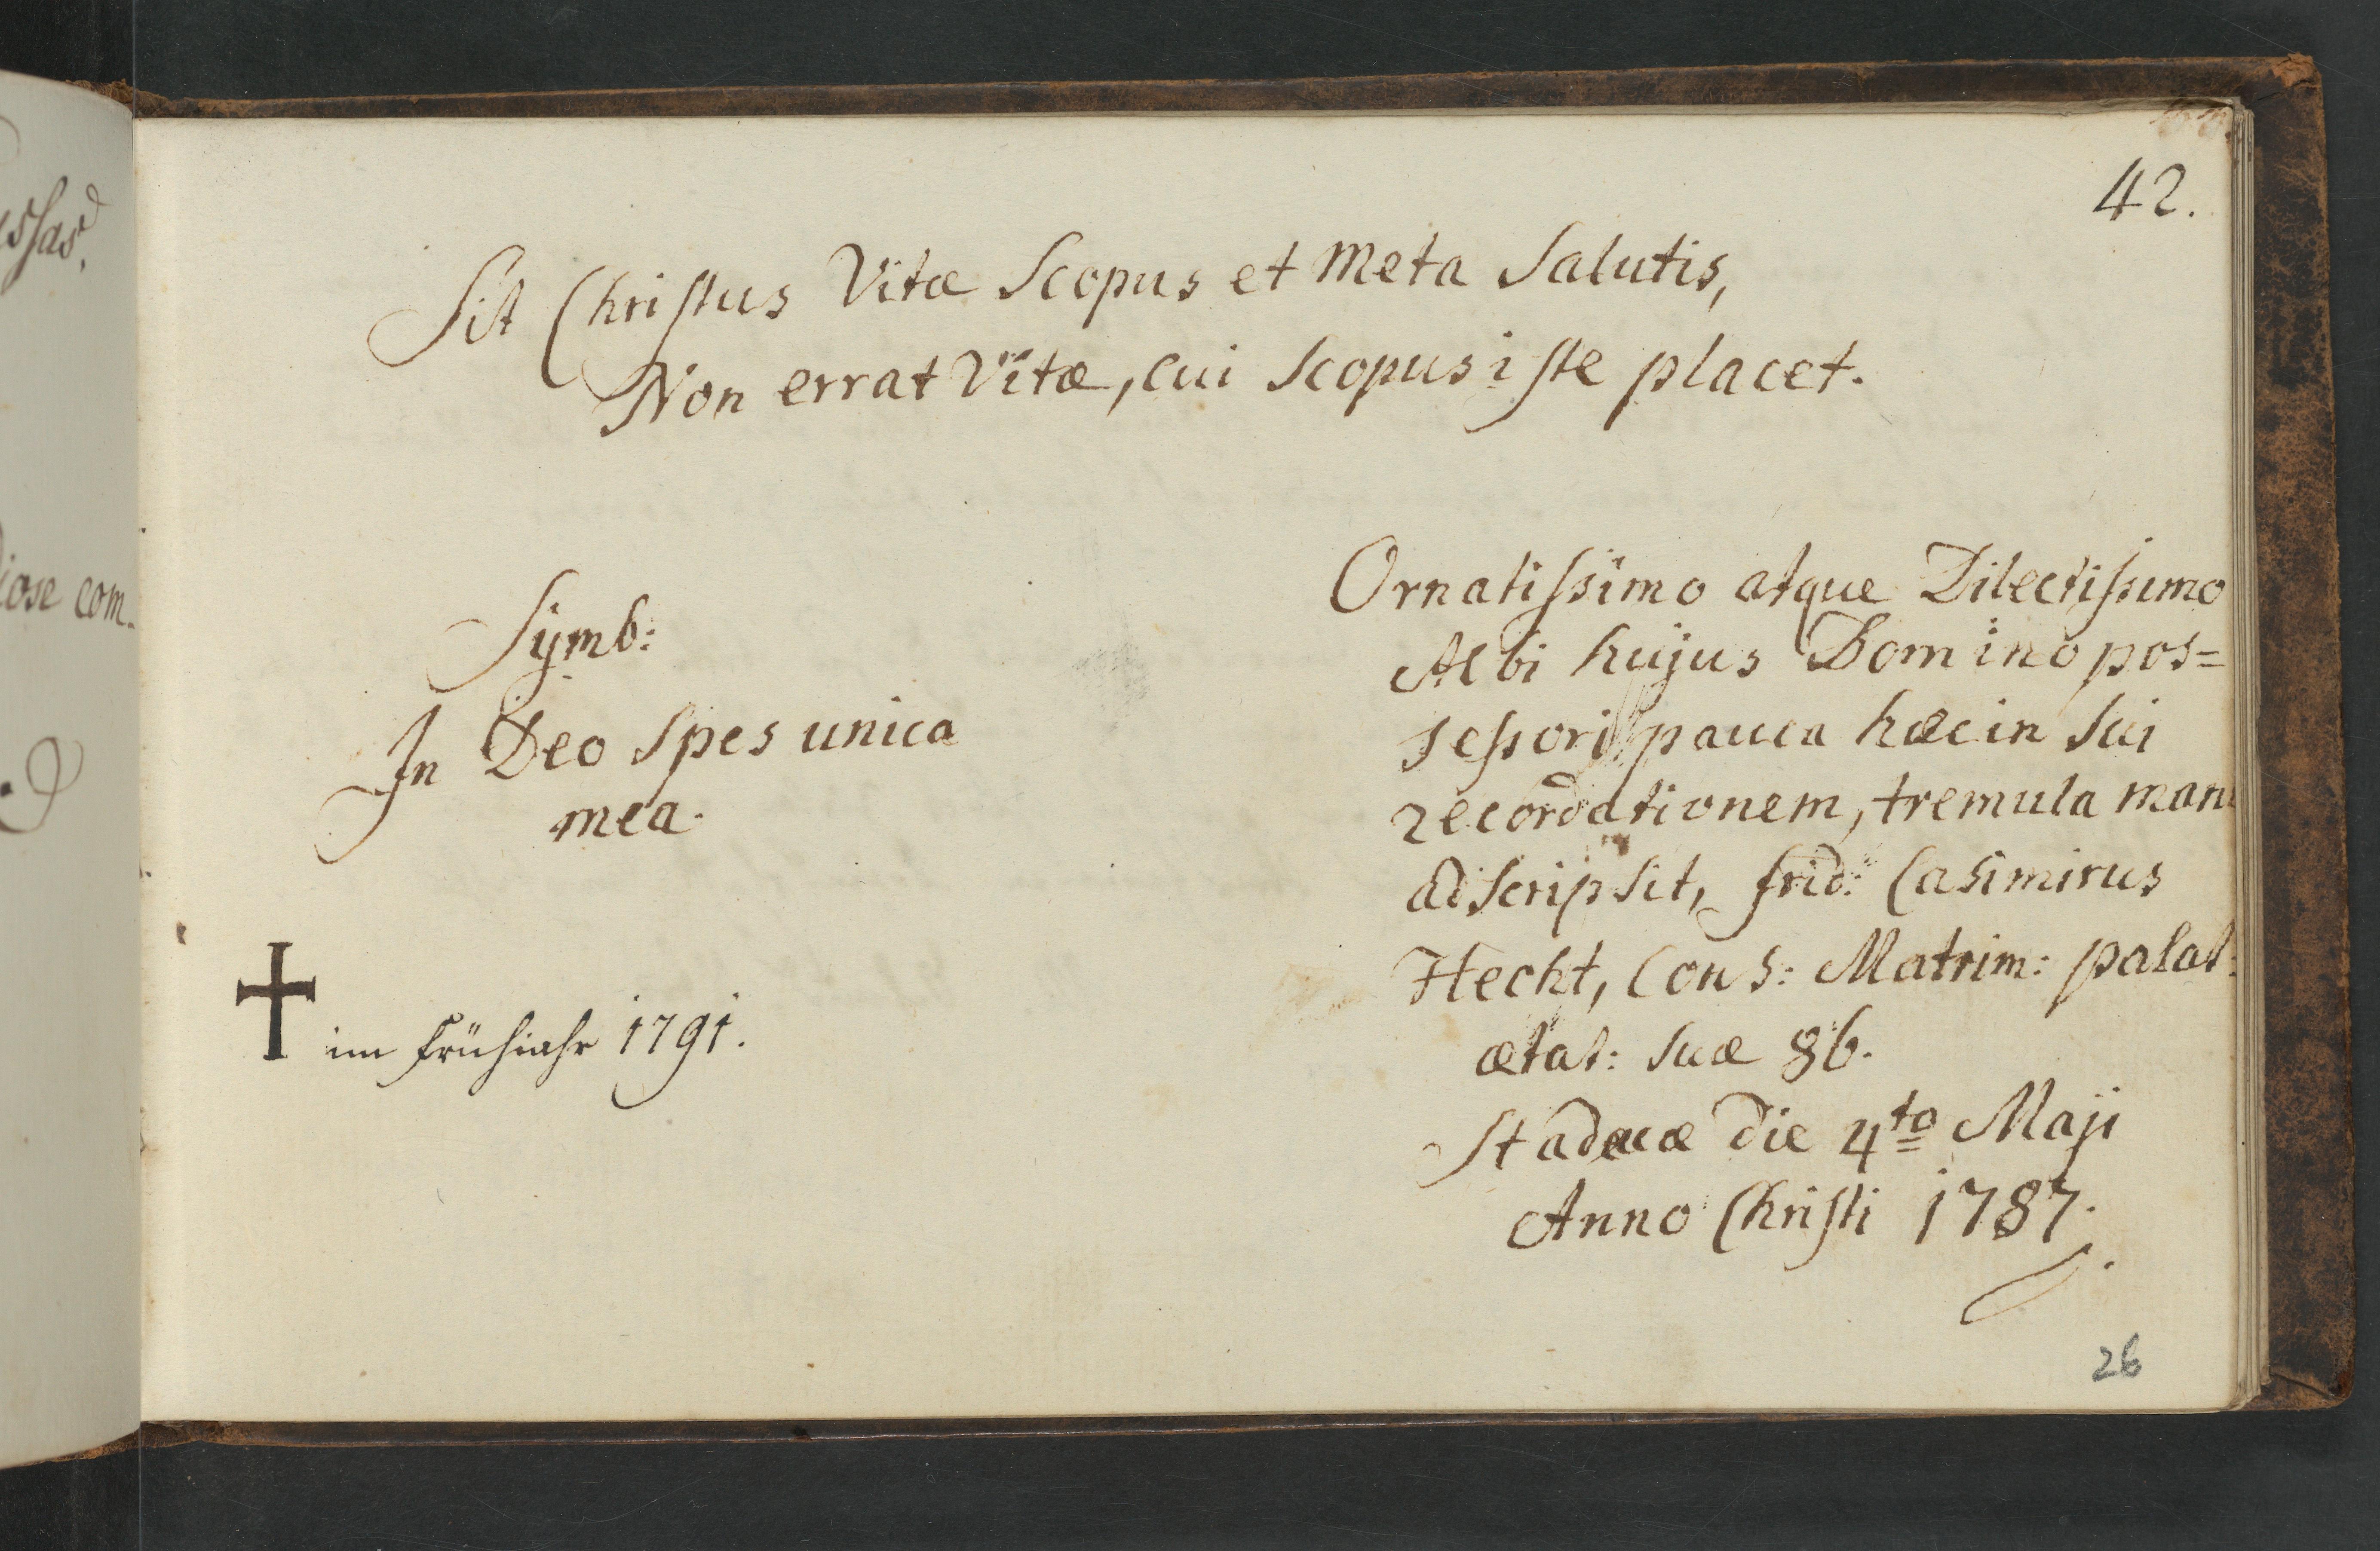 42.
Sit Christus Vitæ Scopus et Meta Salutis,
Non errat Vitæ, cui Scopus iste placet.
Symb:
In Deo Spes unica
mea.
Ornatissimo atque Dilectissimo
Albi hujus Domino pos=
sessori pauca hæc in Sui
recordationem, tremula manu
adscripsit, frid: Casimirus
Hecht, Cons: Matrim: palat:
ætat: suæ 86.
die 4to Maji
Anno Christi 1787.
im Frühjahr 1791.
26
ose com-